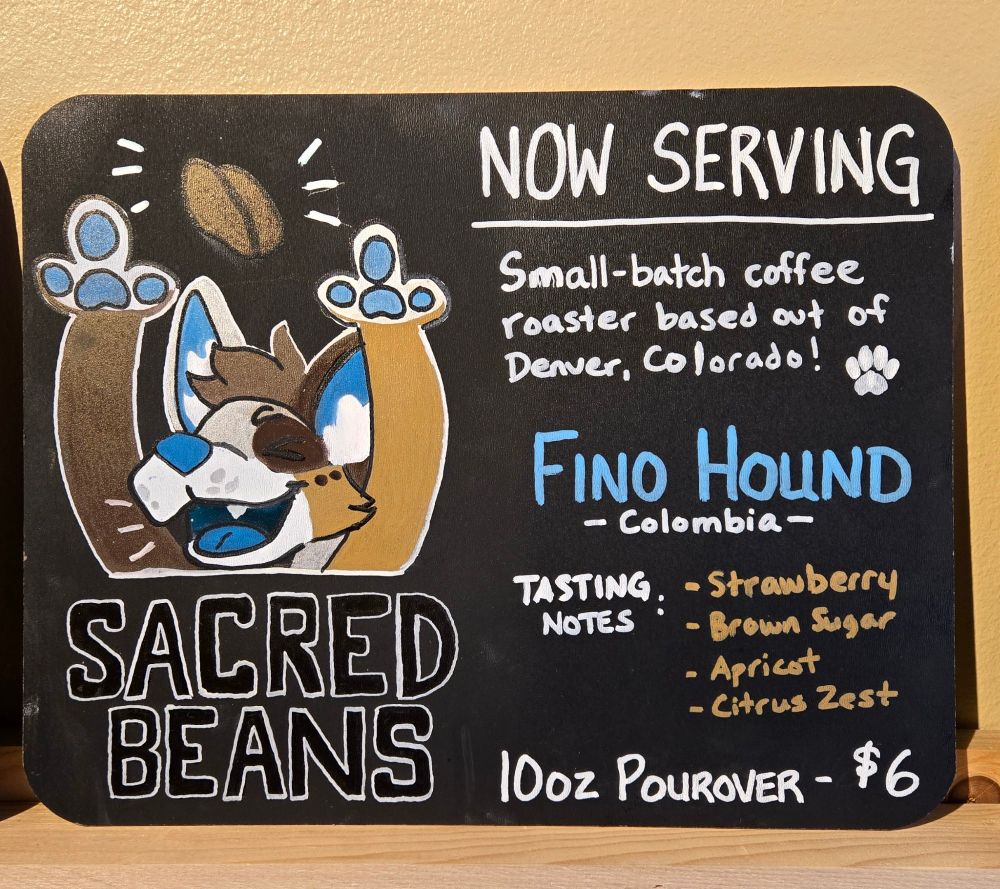 NOW SERVING
Small-batch coffee
roaster based out of
Denver, Colorado!
FINO HOUND
- Colombia -
TASTING NOTES:
- Strawberry
- Brown Sugar
- Apricot
- Citrus Zest
10oz POUROVER - $6
SACRED
BEANS